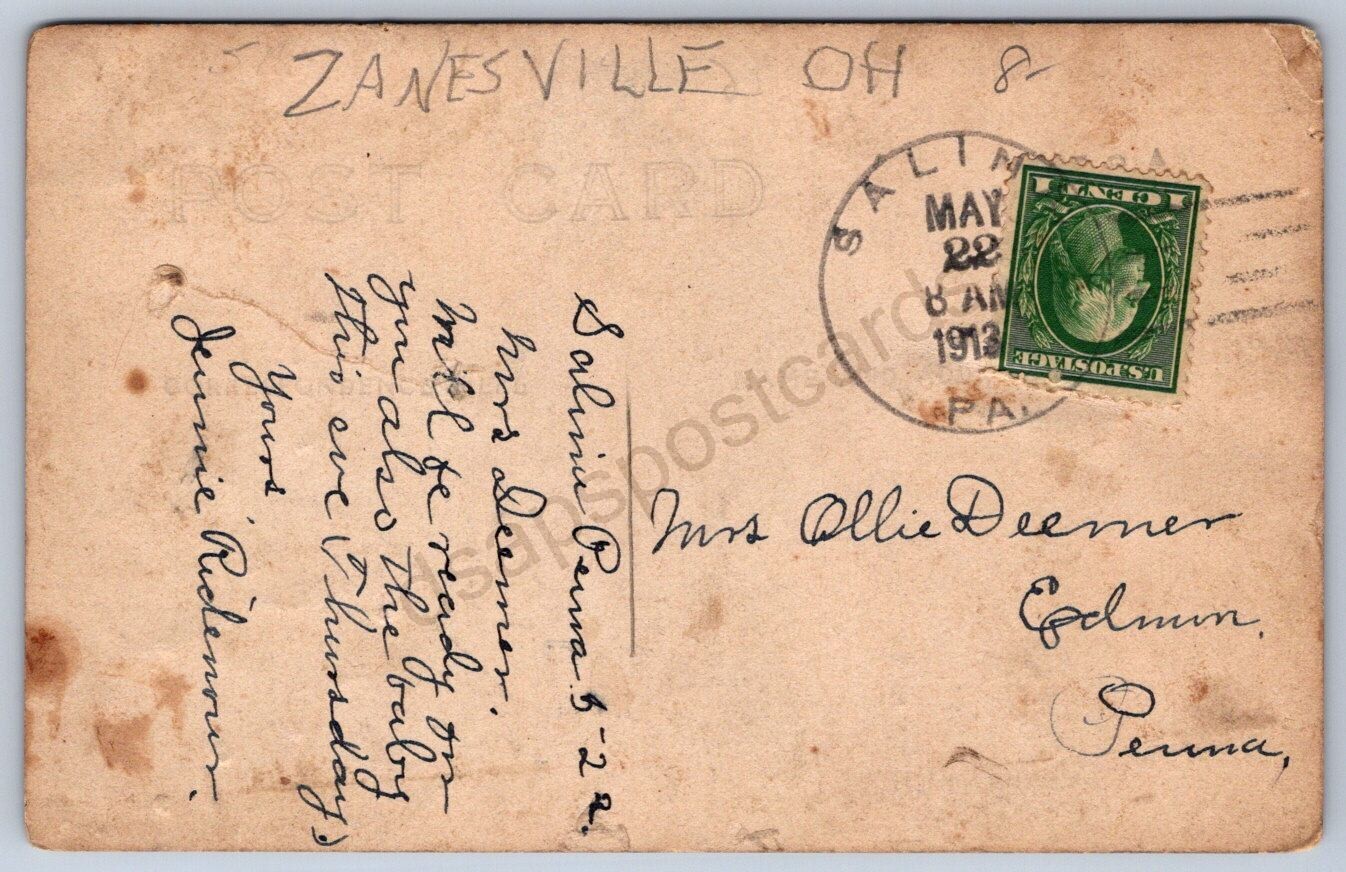 ZANESVILLE OH 8-
POST CARD
SALIN
MAY
22
8 AM
1913
PA.
1 CENT 1
U.S. POSTAGE
Salina Penna. 5-22.
Mrs Deemer.
Will be ready for
you also the baby
this eve (Thursday)
Yours
Jennie Ridenour.
Mrs Ollie Deemer
Edmon,
Penna,